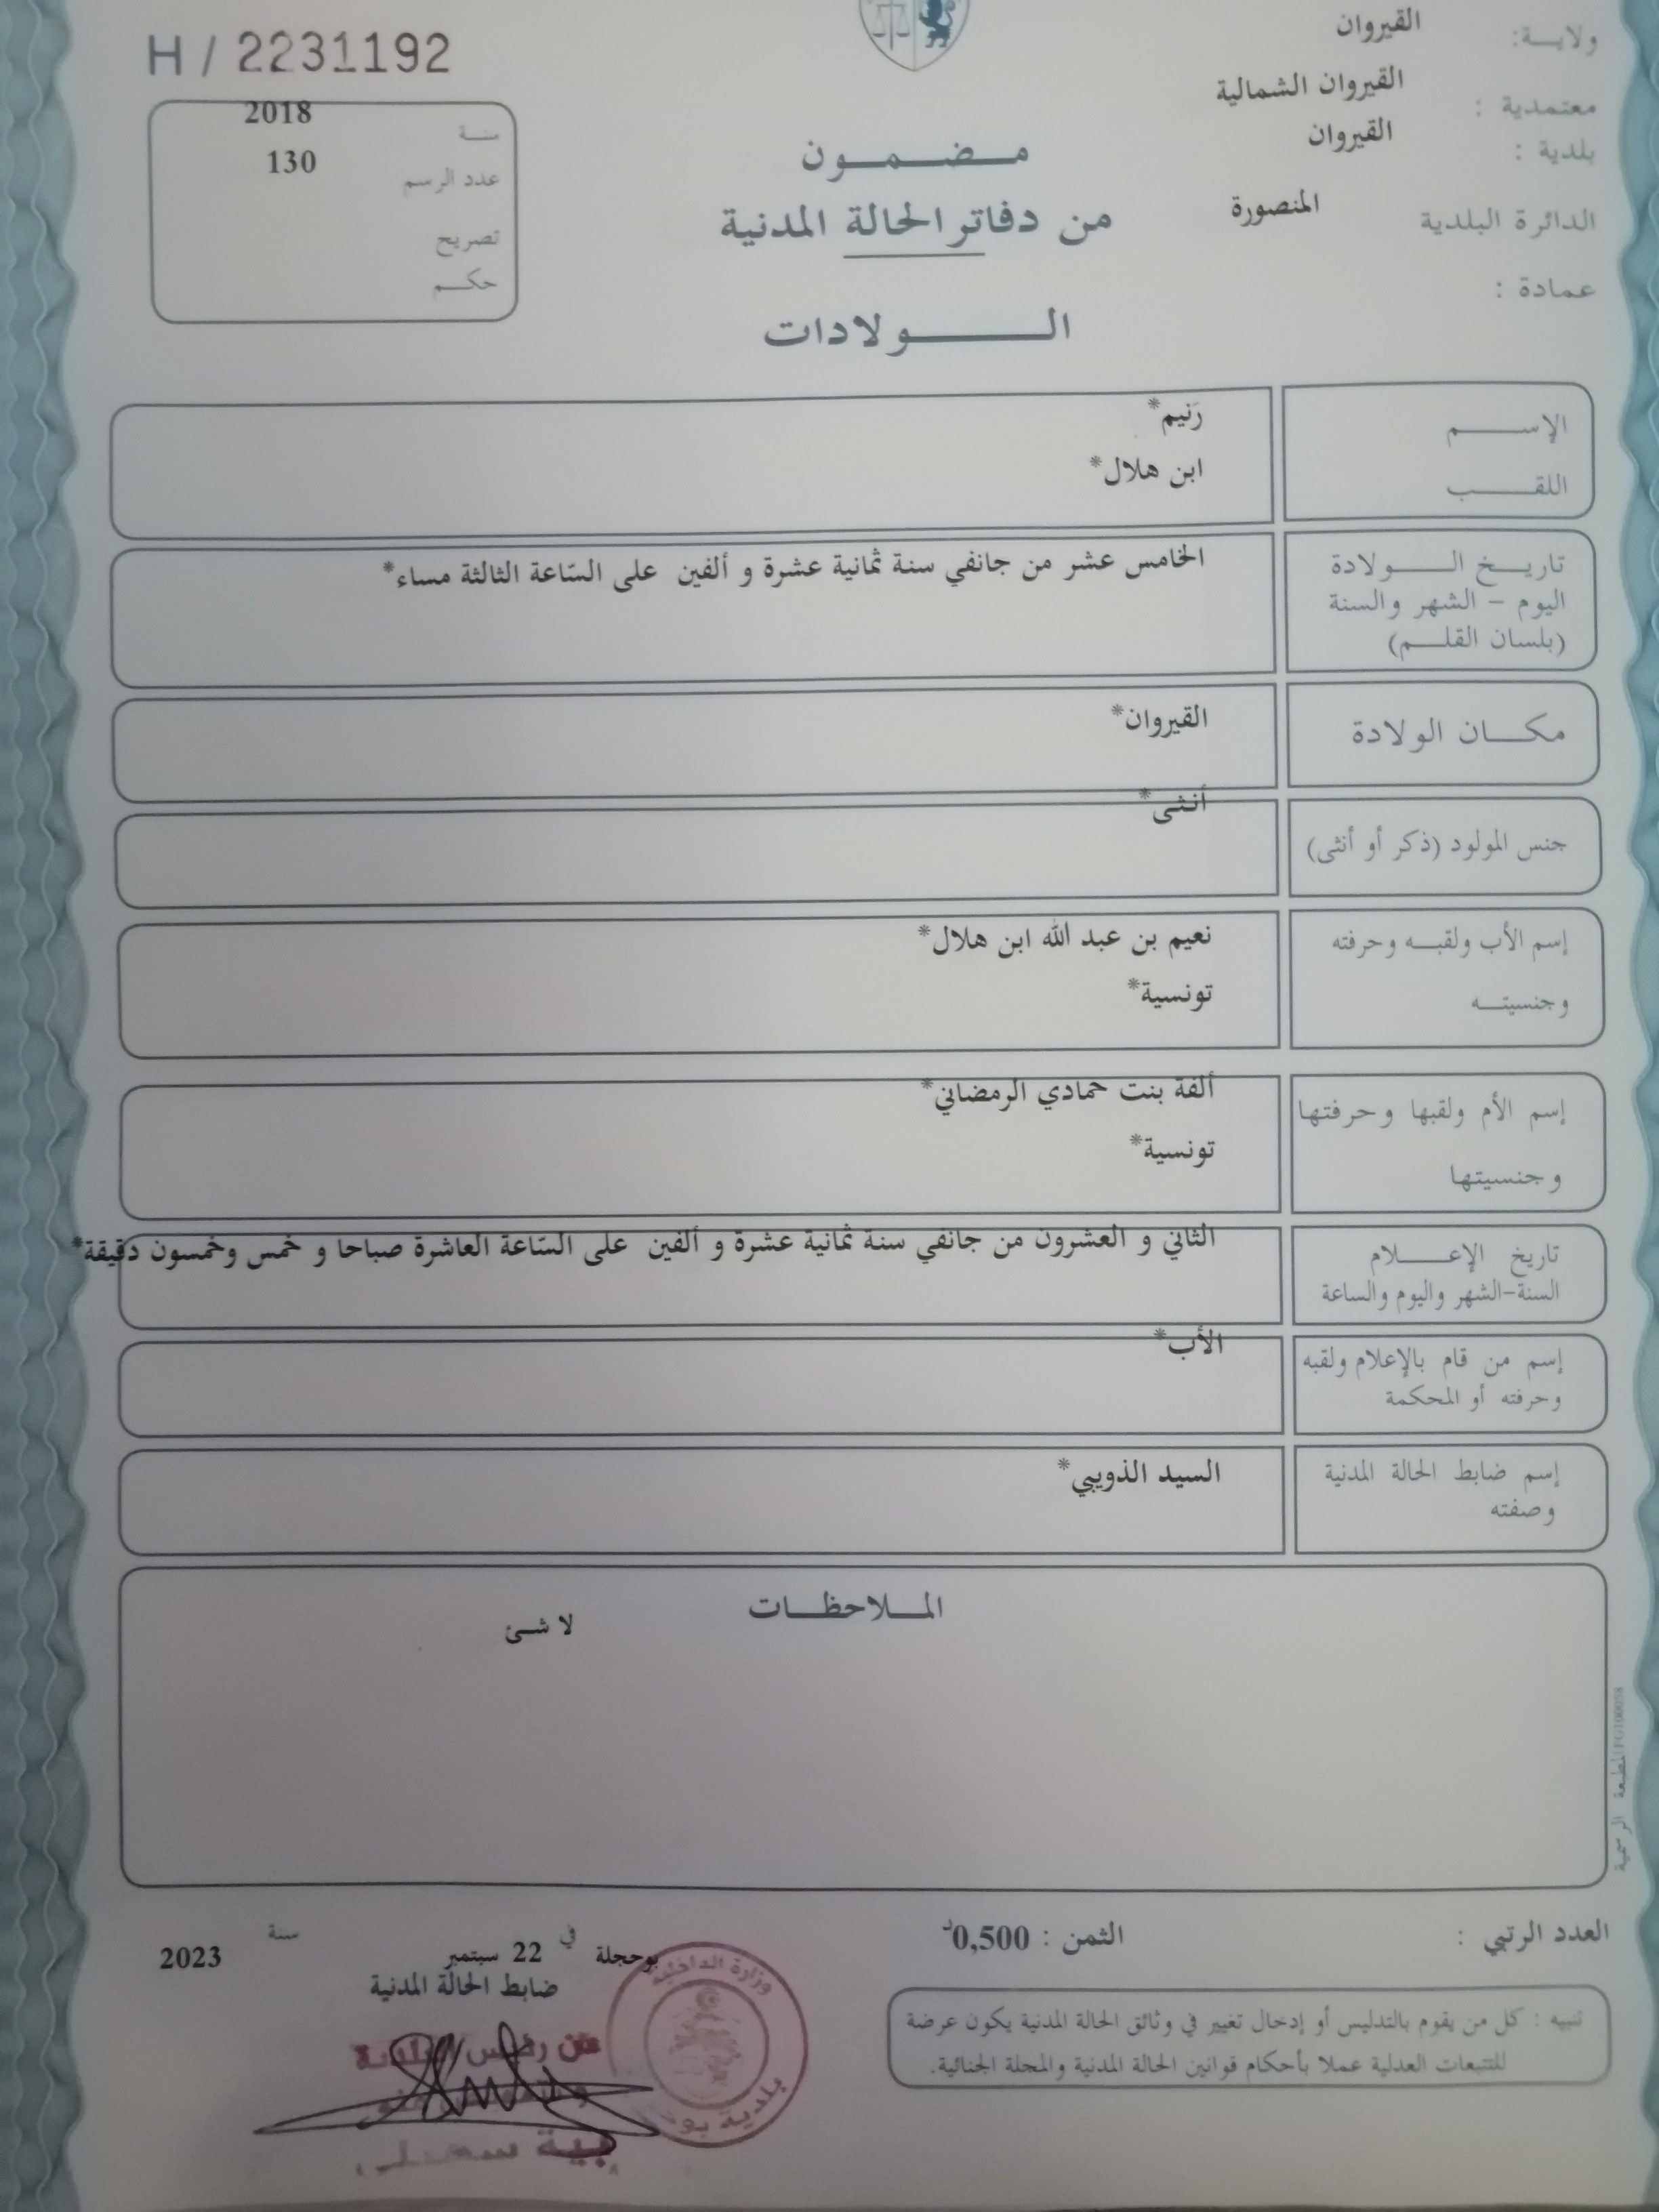 H / 2231192
ولايـــة: القيروان
معتمدية : القيروان الشمالية
بلدية : القيروان
الدائرة البلدية المنصورة
عمادة :
سنـة 2018
عدد الرسم 130
تصريح
حكـــم
مـــضـــمـــون
من دفاتر الحالة المدنية
الـــــــولادات
الإســـــــم رَنيم*
اللقـــــــب ابن هلال*
تاريــخ الـــــولادة الخامس عشر من جانفي سنة ثمانية عشرة و ألفين على السّاعة الثالثة مساء*
اليوم – الشهر والسنة
(بلسان القلــــم)
مكـــان الولادة القيروان*
جنس المولود (ذكر أو أنثى) أنثى*
إسم الأب ولقبـــه وحرفته نعيم بن عبد الله ابن هلال*
وجنسيتـــه تونسية*
إسم الأم ولقبها وحرفتها ألفة بنت حمادي الرمضاني*
وجنسيتها تونسية*
تاريخ الإعـــــلام الثاني و العشرون من جانفي سنة ثمانية عشرة و ألفين على السّاعة العاشرة صباحا و خمس وخمسون دقيقة*
السنة-الشهر واليوم والساعة
إسم من قام بالإعلام ولقبه الأب*
وحرفته أو المحكمة
إسم ضابط الحالة المدنية السيد الذويبي*
وصفته
المـــلاحظـــات
لا شئ
المطبعة الرسمية
العدد الرتبي :
الثمن : 0,500د
بوحجلة في 22 سبتمبر سنة 2023
ضابط الحالة المدنية
تنبيه : كل من يقوم بالتدليس أو إدخال تغيير في وثائق الحالة المدنية يكون عرضة
للتتبعات العدلية عملا بأحكام قوانين الحالة المدنية والمجلة الجنائية.
وزارة الداخلية
بلدية
عن رئيس البلدية